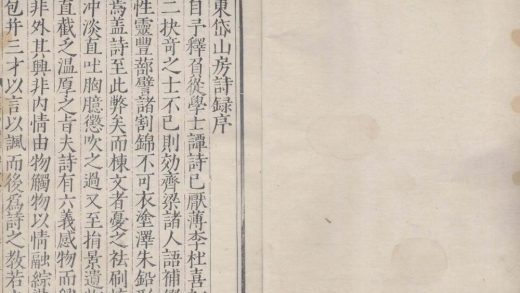 東岱山房詩録序
自予釋負從學士譚詩已厭薄李杜喜
二抉竒之士不已則効齊梁諸人語補
性靈豐蔀譬諸割錦不可衣塗澤朱鉛
焉盖詩至此弊矣而棟文者憂之袪刷
沖淡直吐胸臆懲吹之過又至捐景遺
直截乏温厚之旨夫詩有六義感物而
非外其興非内情由物觸物以情融綜
包并三才以言以諷而後為詩之教若